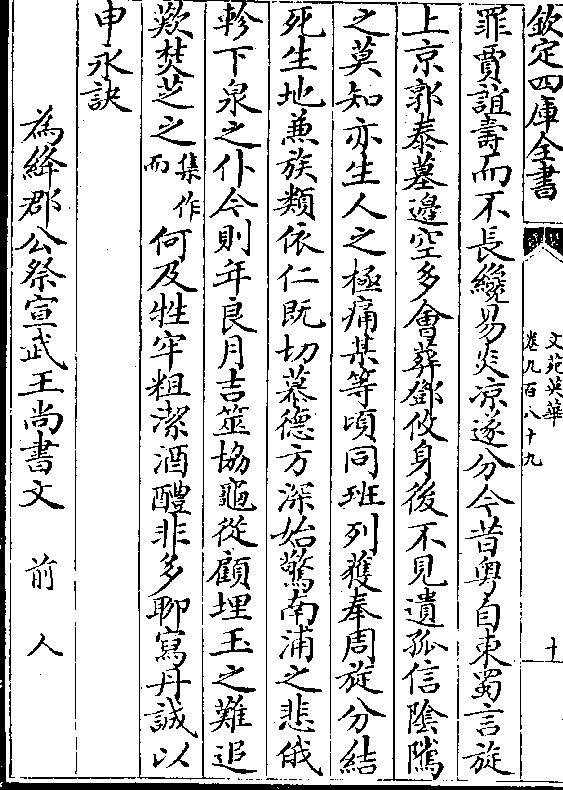 欽定四庫全書
文苑英華
卷九百八十九
十
罪賈誼壽而不長纔易炎凉遂分今昔粵自東蜀言旋
上京郭泰墓邊空多會葬鄧攸身後不見遺孤信陰騭
之莫知亦生人之極痛某等頃同班列獲奉周旋分結
死生地兼族類依仁既切慕德方深始驚南浦之悲俄
軫下泉之仆今則年良月吉筮協龜從顧埋玉之難追
歎焚芝之集作而何及牲牢粗潔酒醴非多聊寫丹誠以
申永訣
為絳郡公祭宣武王尚書文 前人